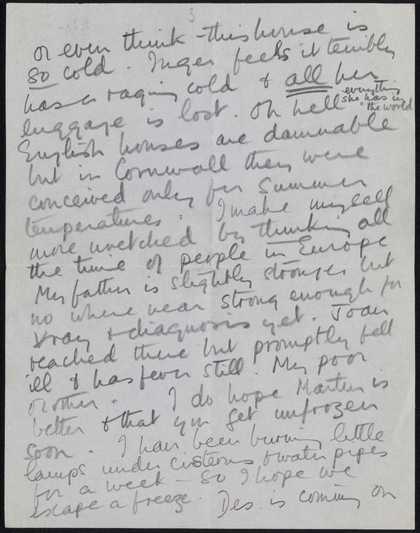 3
or even think - this house is
so cold. Inger feels it terribly
has a raging cold & all her
luggage is lost. Oh hell everything she has in the world
English houses are damnable
but in Cornwall they were
conceived only for Summer
temperatures. I make myself
more wretched by thinking all
the time of people in Europe
My father is slightly stronger but
no where near strong enough for
xray & diagnosis yet. Joan
reached there but promptly fell
ill & has fever still. My poor
mother. I do hope Martin is
better & that you get unfrozen
soon. I have been burning little
lamps under cisterns & water pipes
for a week - so I hope we
escape a freeze. Des. is coming on